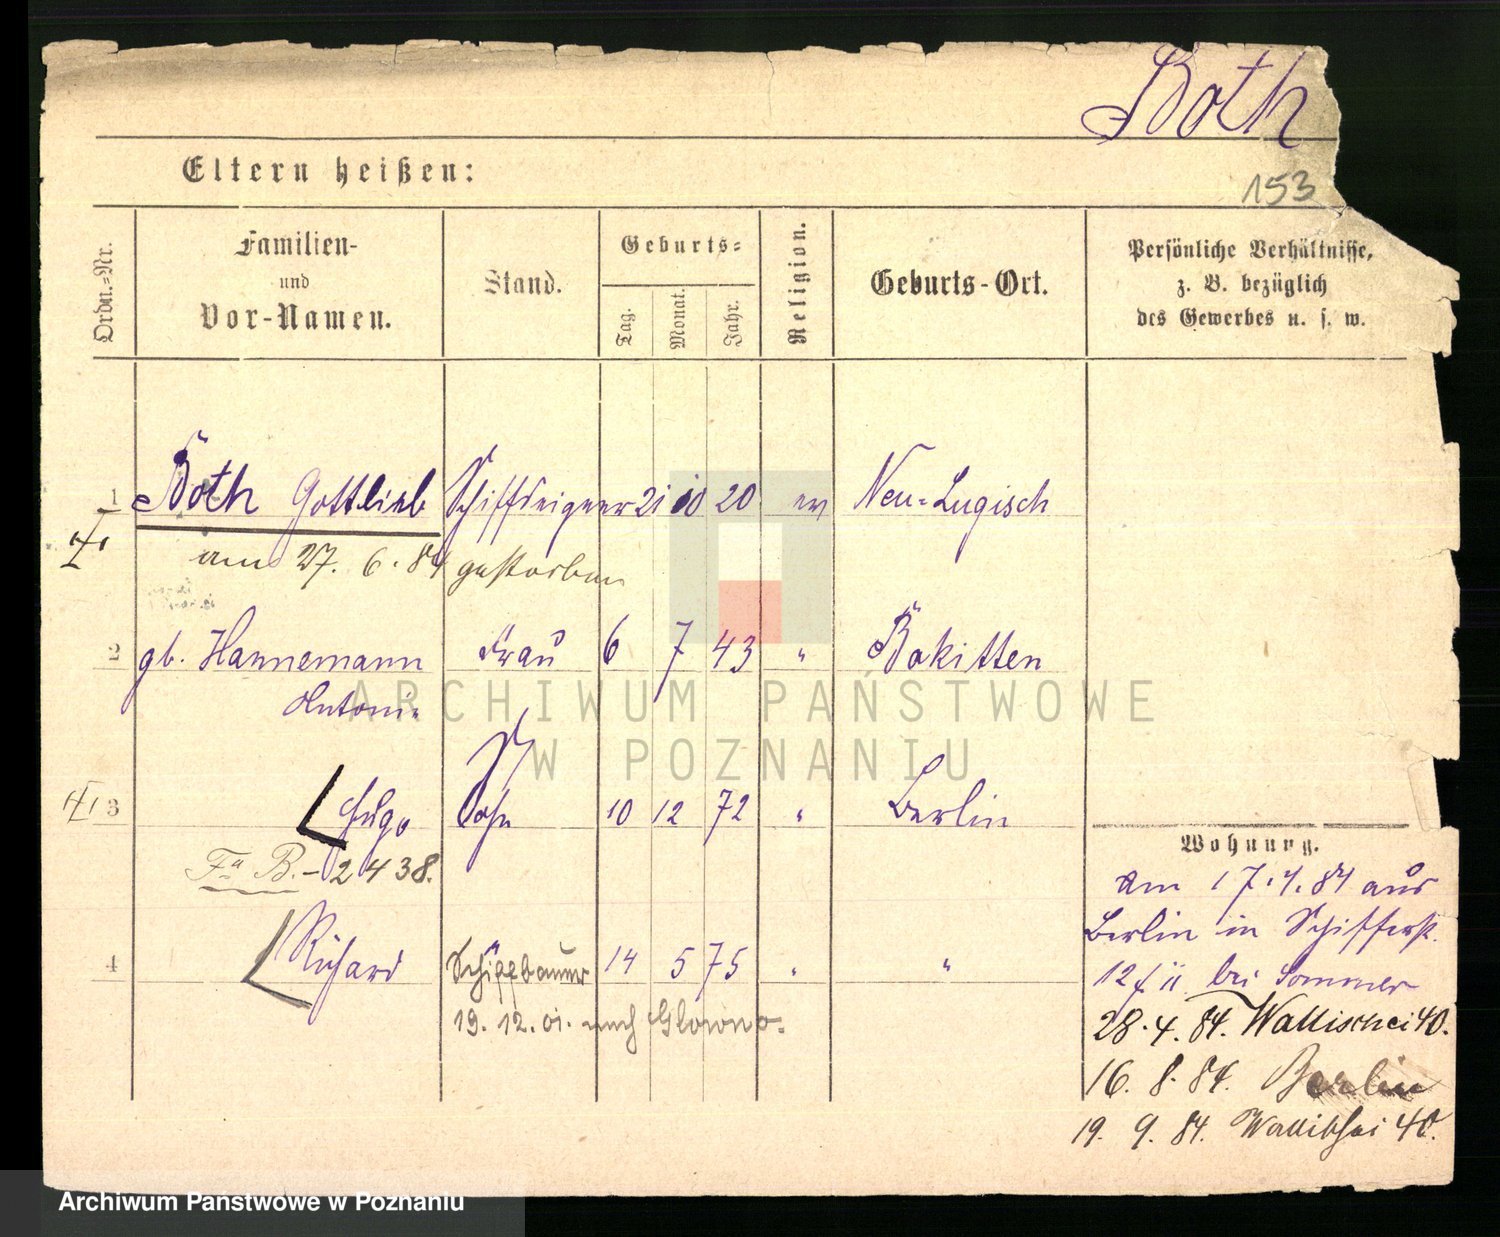 Both
153
Eltern heißen:
Ordn.-Nr.
Familien-
und
Vor-Namen.
Stand.
Geburts-
Tag.
Monat.
Jahr.
Religion.
Geburts-Ort.
Persönliche Verhältnisse,
z. B. bezüglich
des Gewerbes u. s. w.
1 Both Gottlieb Schiffseigner 21 10 20 ev Neu-Lugisch
am 27. 6. 84 gestorben
2 gb. Hannemann Frau 6 7 43 " Bokitten
Antonie
3 Hugo Sohn 10 12 72 " Berlin
Fa B. - 2438.
4 Richard Schiffbauer 14 5 75 " "
19. 12. 01. nach Glowno.
Wohnung.
Am 17.4.84 aus
Berlin in Schifferst.
12 f II bei Sommer
28. 4. 84. Wallischei 40.
16. 8. 84. Berlin
19. 9. 84. Wallischei 40.
ARCHIWUM PAŃSTWOWE
W POZNANIU
Archiwum Państwowe w Poznaniu